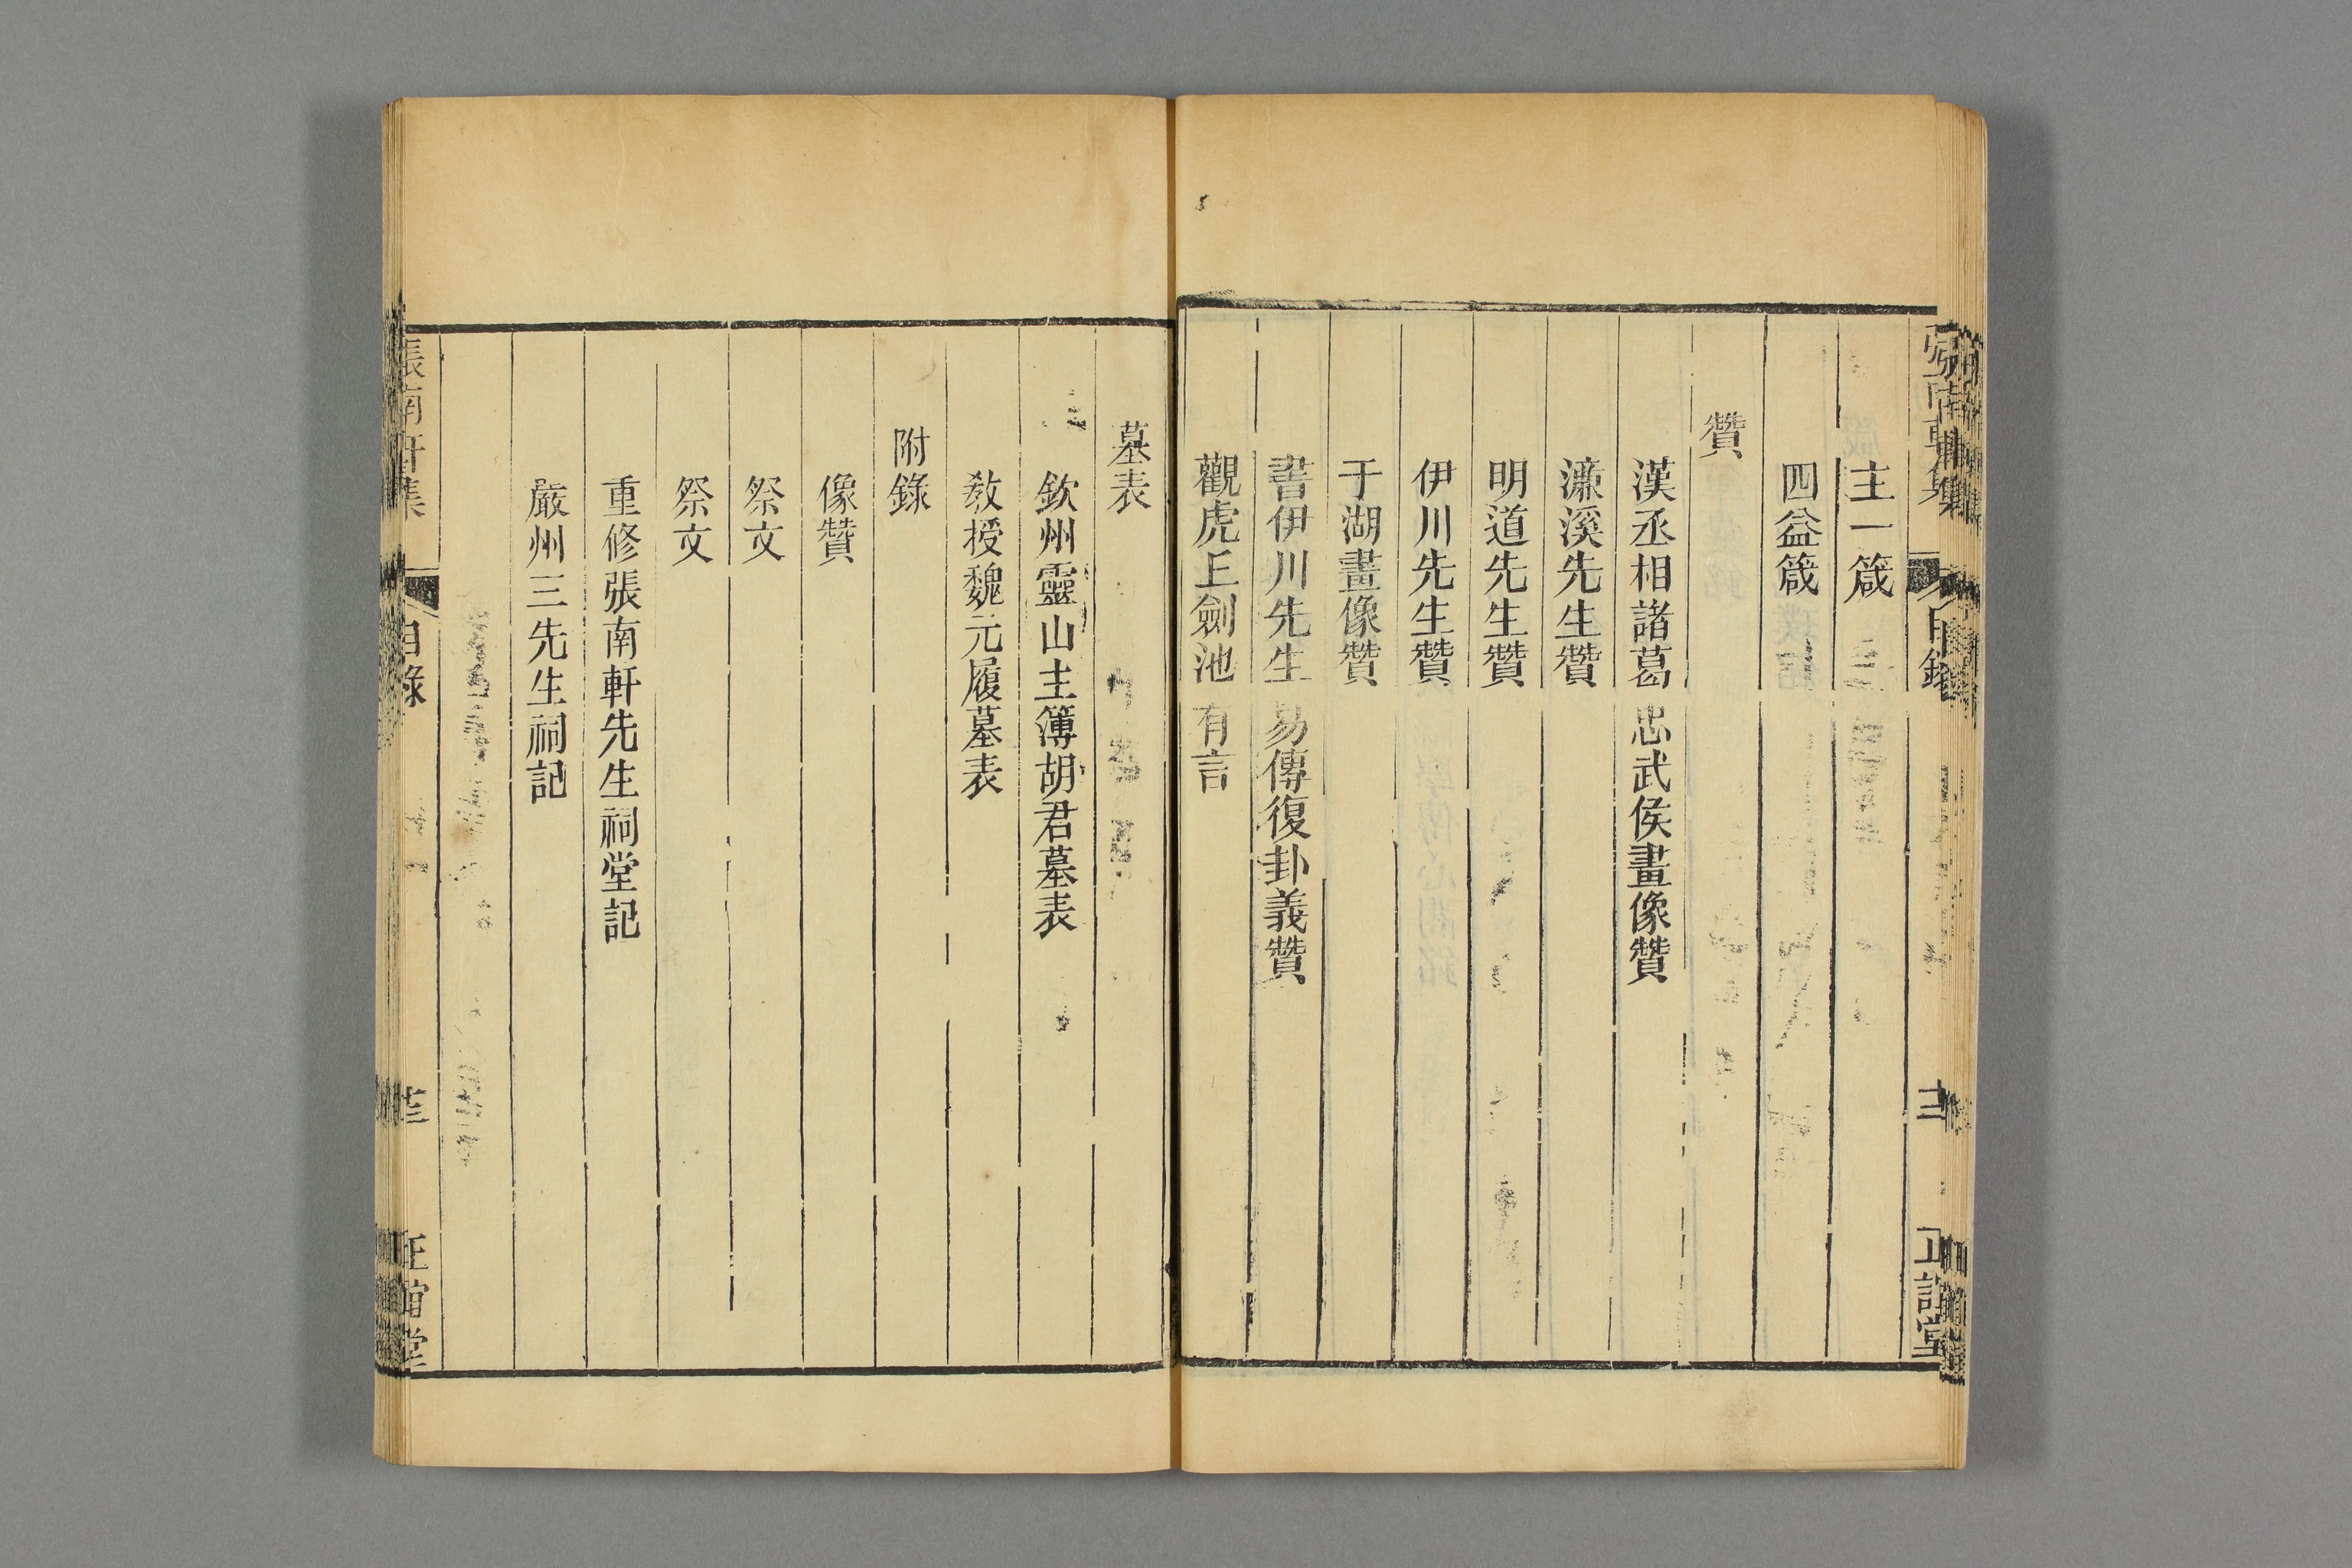 主一箴
四益箴
贊
漢丞相諸葛忠武侯畫像贊
濂溪先生贊
明道先生贊
伊川先生贊
于湖畫像贊
書伊川先生易傳復卦義贊
觀虎丘劍池有言
墓表
欽州靈山主簿胡君墓表
敎授魏元履墓表
附錄
像贊
祭文
祭文
重修張南軒先生祠堂記
嚴州三先生祠記
張南軒集
目錄